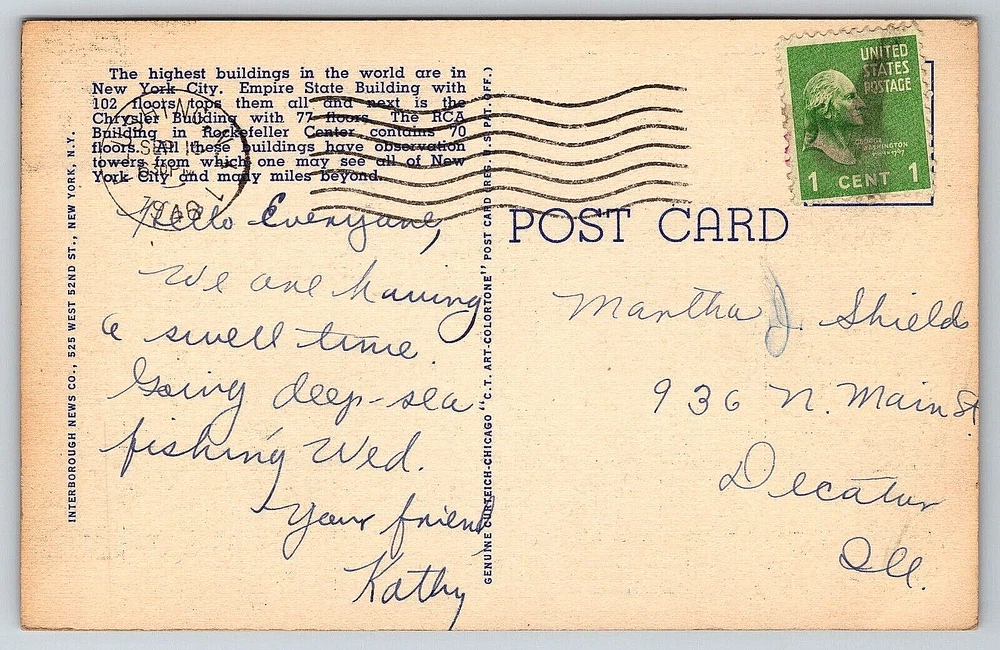 The highest buildings in the world are in
New York City. Empire State Building with
102 floors tops them all and next is the
Chrysler Building with 77 floors. The RCA
Building in Rockefeller Center contains 70
floors. All these buildings have observation
towers from which one may see all of New
York City and many miles beyond.
SEP 16
630PM
Hello Everyone,
We are having
a swell time.
Going deep-sea
fishing Wed.
Your friend
Kathy
INTERBOROUGH NEWS CO., 525 WEST 52ND ST., NEW YORK, N.Y.
GENUINE CURTEICH-CHICAGO "C.T. ART-COLORTONE" POST CARD (REG. U.S. PAT. OFF.)
UNITED
STATES
POSTAGE
GEORGE
WASHINGTON
1 CENT 1
POST CARD
Martha J. Shields
936 N. Main St.
Decatur
Ill.